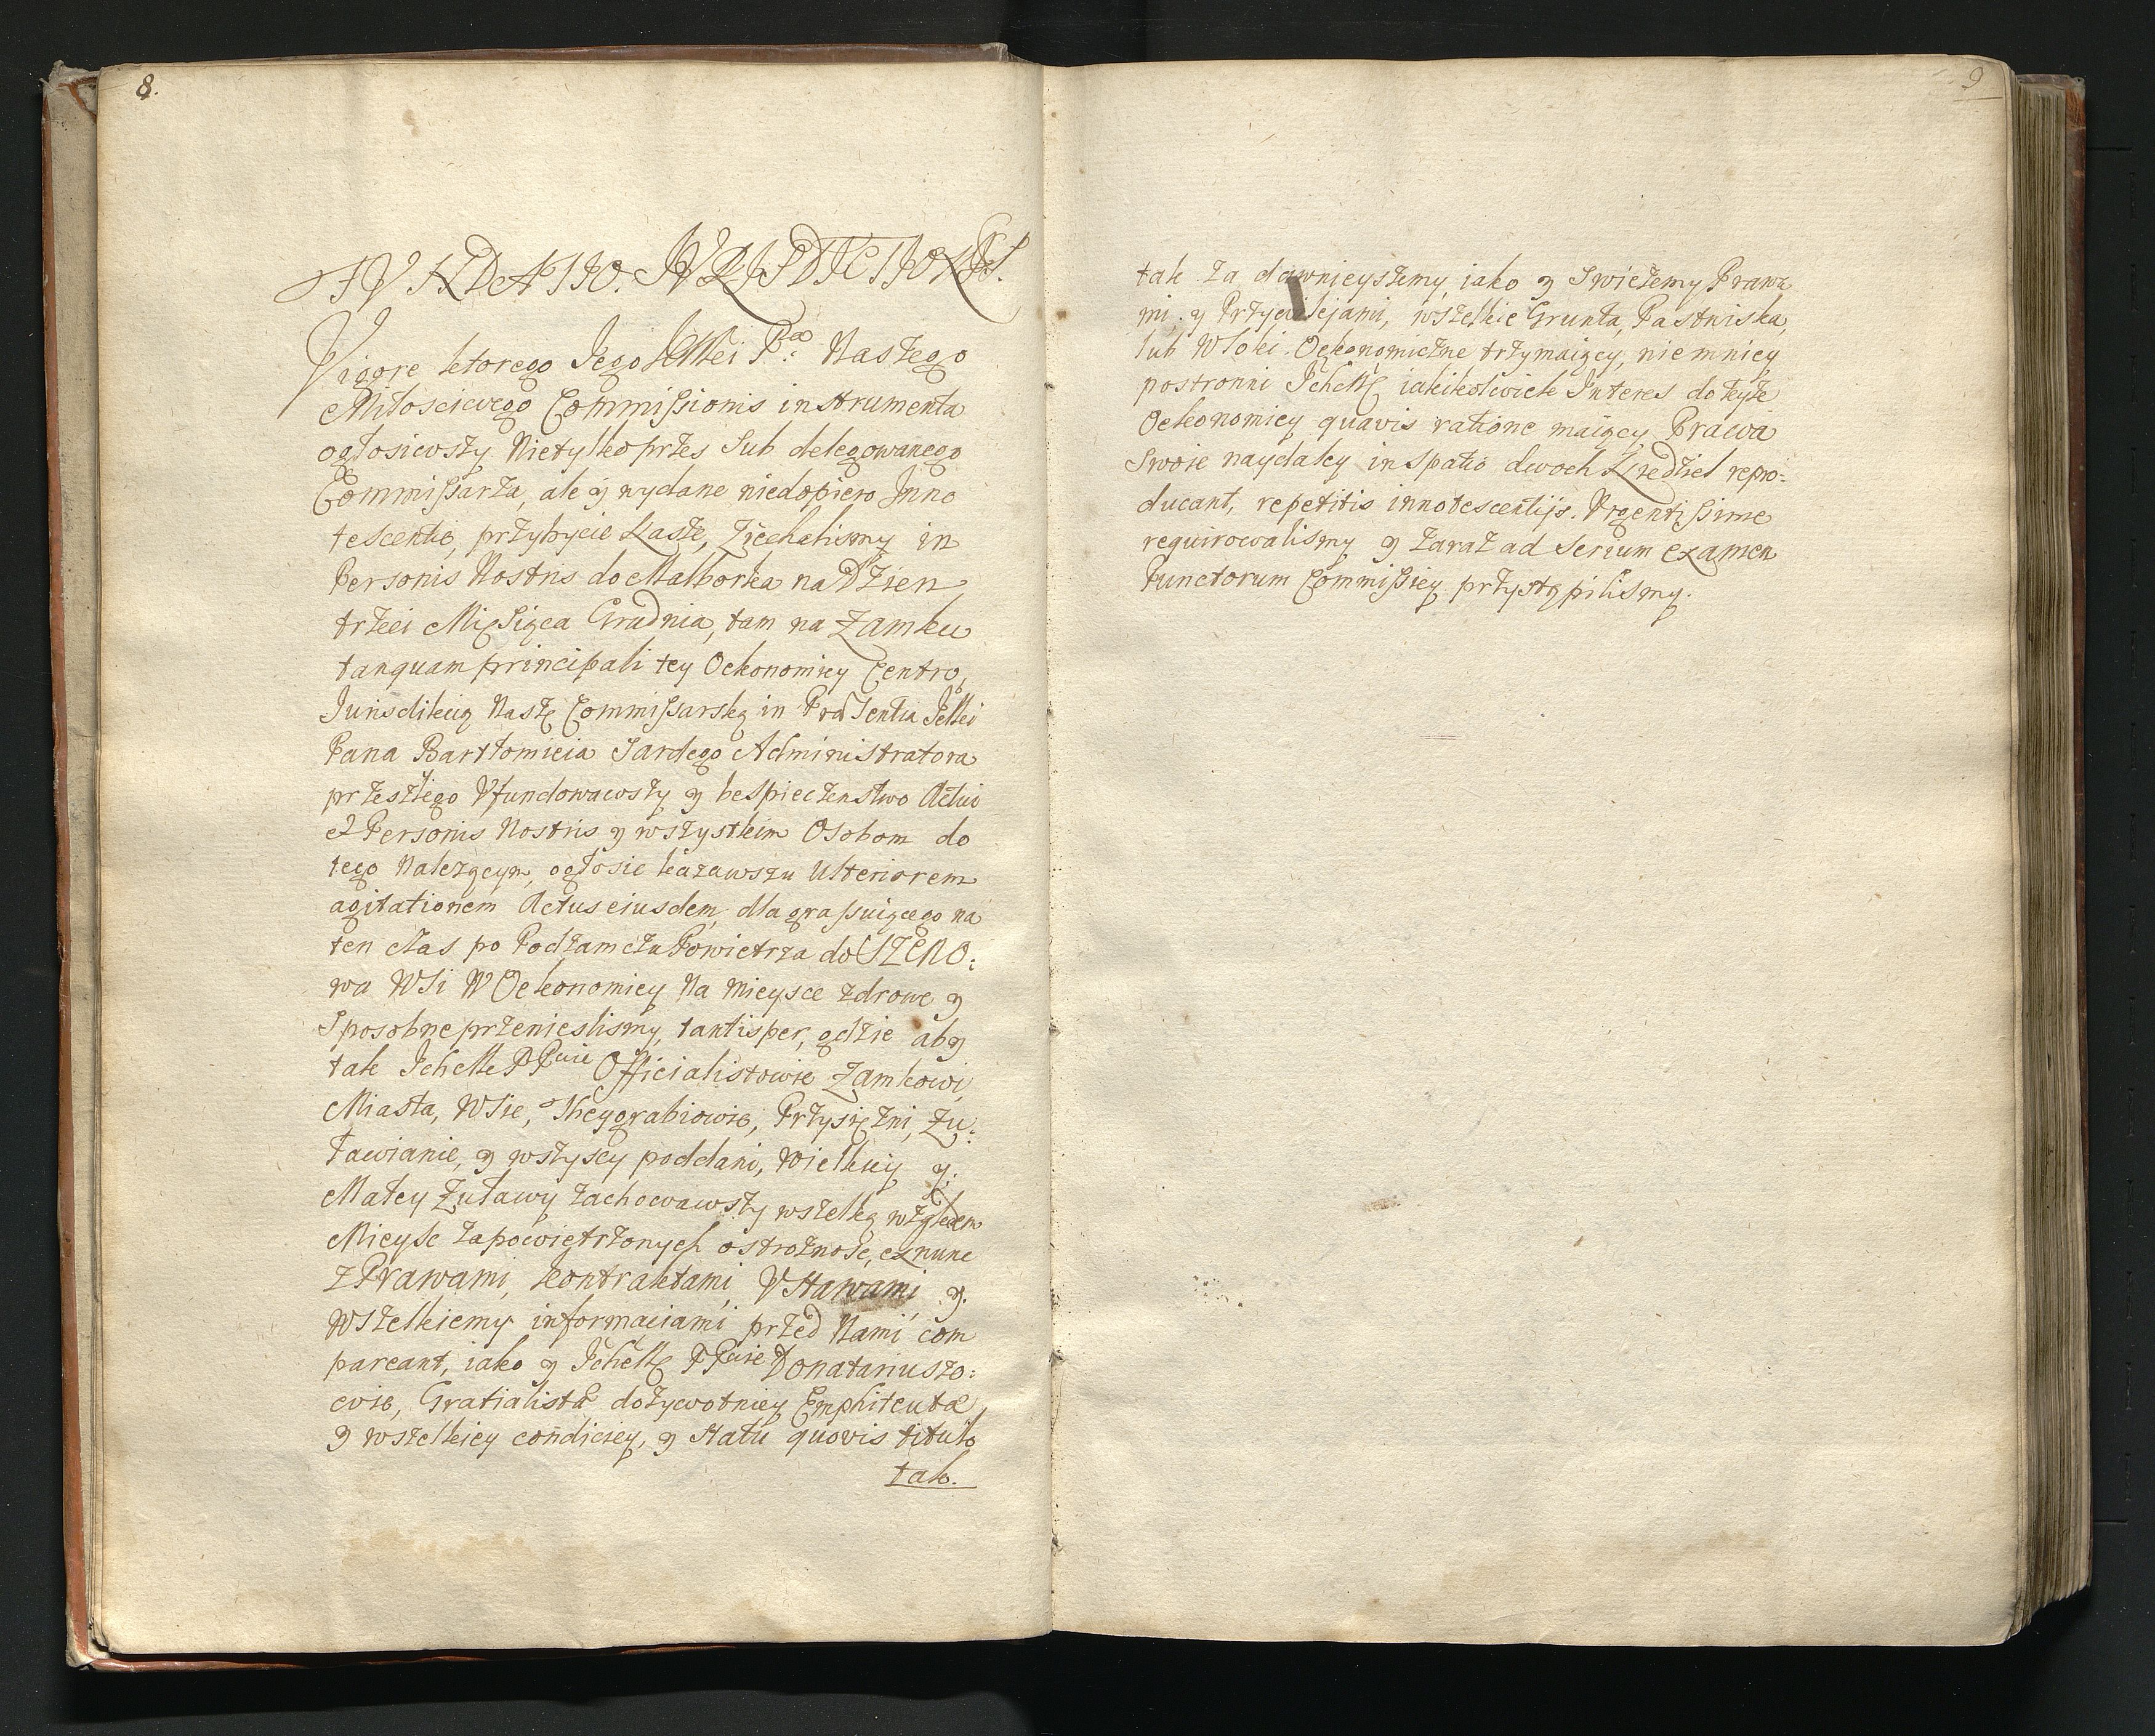 8.
FVNDATIO. IVRISDICTIONIS.
Vigore ktorego Jego KMći P:ⁿᵃ Naszego
Miłosciwego Commissionis instrumenta
ogłosiwszy Nietylko przes Sub delegowanego
Commissarza, ale ÿ wydane niedopiero Inno
tescentie, przybycie Nasze, Ziechalismy in
Personis Nostris do Malborka na Dzien
trzeci Miesiąca Grudnia, tam na Zamku
tanquam principali tey Oekonomiey Centro,
Jurisdikcią Naszę Commissarską in Præsentia Jeͫci
Pana Bartłomieia Sardego Administratora
przeszłego Vfundowawszy y bespieczenstwo Actui
et Personis Nostris y wszystkim Osobom do
tego Nalezącym, ogłosic kazawszu Ulteriorem
agitationem Actus eiusdem, dla grassuiącego na
ten czas po Podzamczu Powietrza do SZENO:
wa WSi W Oekonomiey Na Mieysce zdrowe y
Sposobne przenieslismy, tantisper, gdzie aby
tak Ichͫc PPᵒʷⁱᵉ Officialistowie Zamkowi,
Miasta, WSie, Theygrabiowie, Przysiężni, Żu:
ławianie, y wszyscy poddani, Wielkiey y
Małey Żuławy zachowawszy wszelką względem
Mieysc zapowietrzonych ostrożnosc, exnunc
z Prawami, kontraktami, VStawami, y.
WSzelkiemy informaciami przed Nami com
pareant, iako y Ichͫc PPᵒʷⁱᵉ Donatariuszo:
wie, Gratialistæ dożywotniey Emphiteutæ
y wszelkiey condiciey, y statu quovis titulo
tak.
9
tak za dawnieyszemy, iako y Swieżemy Prawa
mi, y Przywilejami, wszelkie Grunta, Pastwiska,
lub Włoki. Oekonomiczne trzymaiący, niemniey
postronni Ichͫc iakikolwiek Interes do teyże
Oekonomiey quavis ratione maiący Prawa
Swoie naydaley in spatio dwoch Niedziel repro:
ducant, repetitis innotescentijs. Vrgentissime
requirowalismy y zaraz ad serium examen
Punctorum Commissiey przystąpilismy.